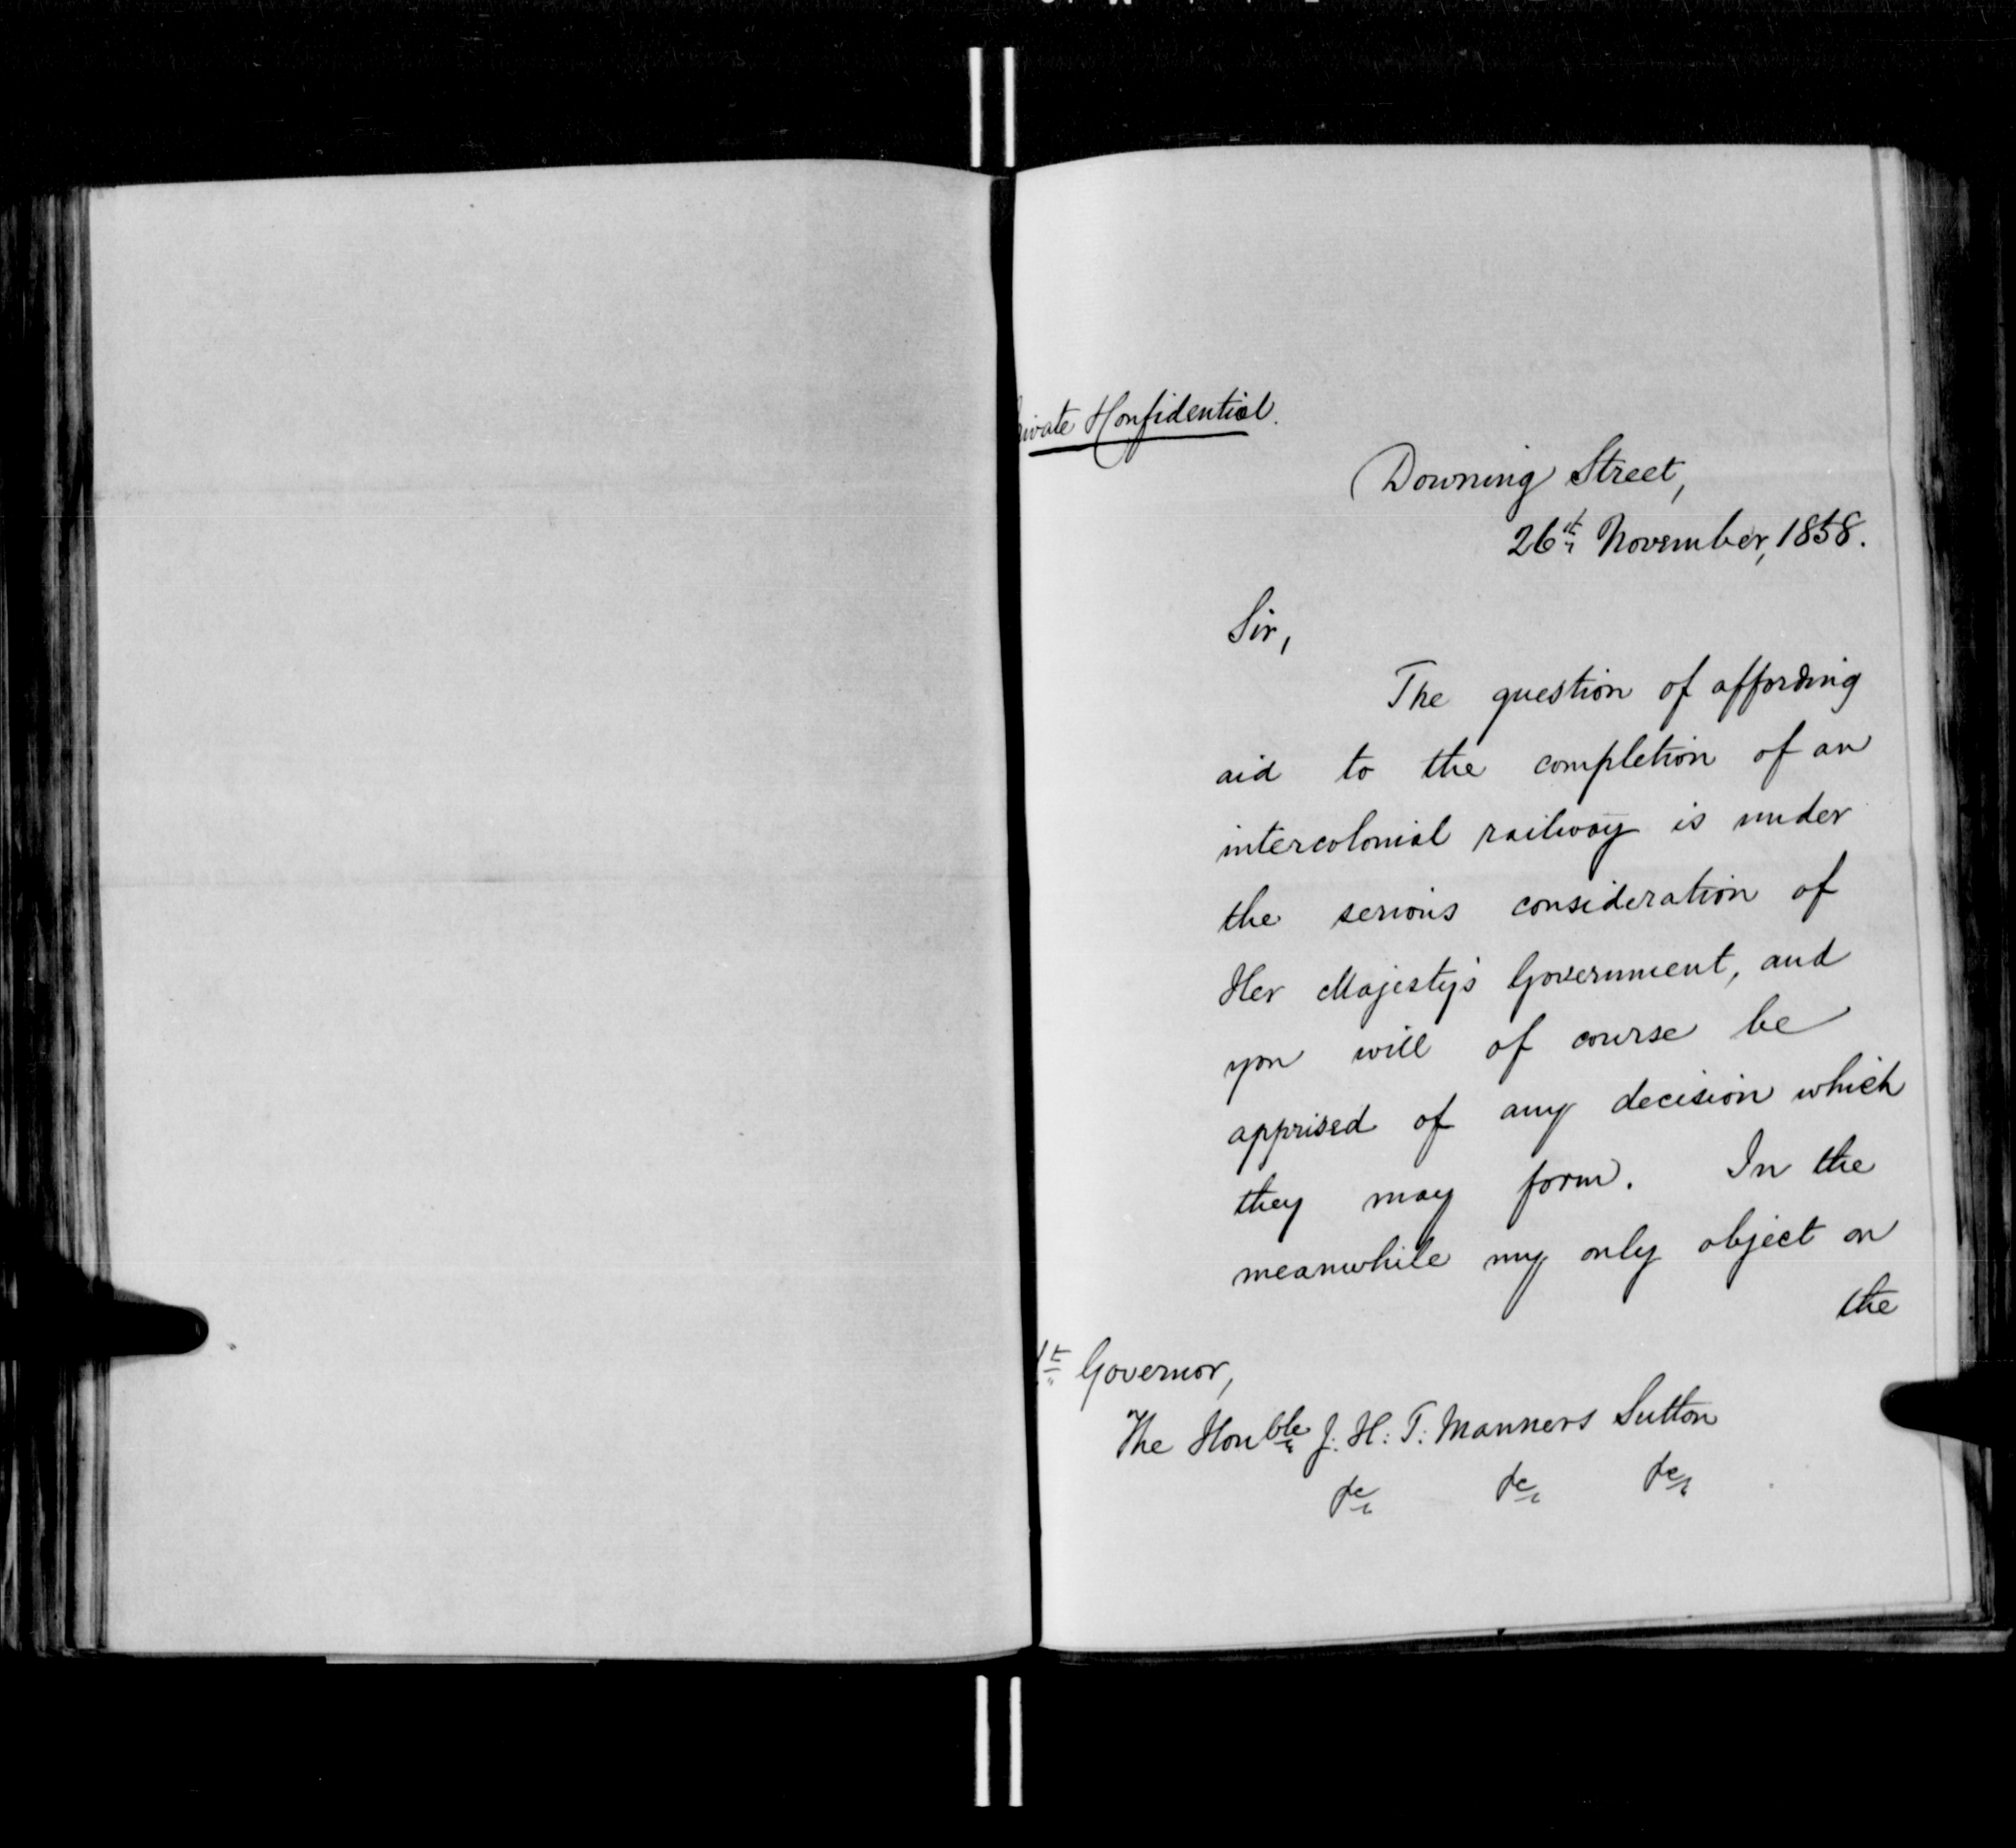 Private & Confidential.
Downing Street,
26th November, 1858.
Sir,
The question of affording
aid to the completion of an
intercolonial railway is under
the serious consideration of
Her Majesty's Government, and
you will of course be
apprised of any decision which
they may form. In the
meanwhile my only object on
the
Lt Governor,
The Honble J. H. T. Manners Sutton
&c &c &c